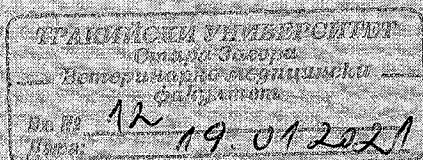 ТРАКИЙСКИ УНИВЕРСИТЕТ
Стара Загора
Ветеринарно медицински
факултет
Вх. № 12
Дата: 19.01 2021